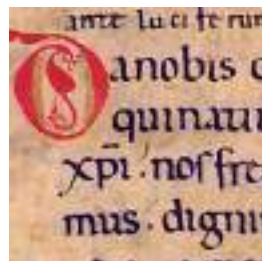 ante luciferum
Da nobis
qui natiu
xp̄i · nostre
mus · digni